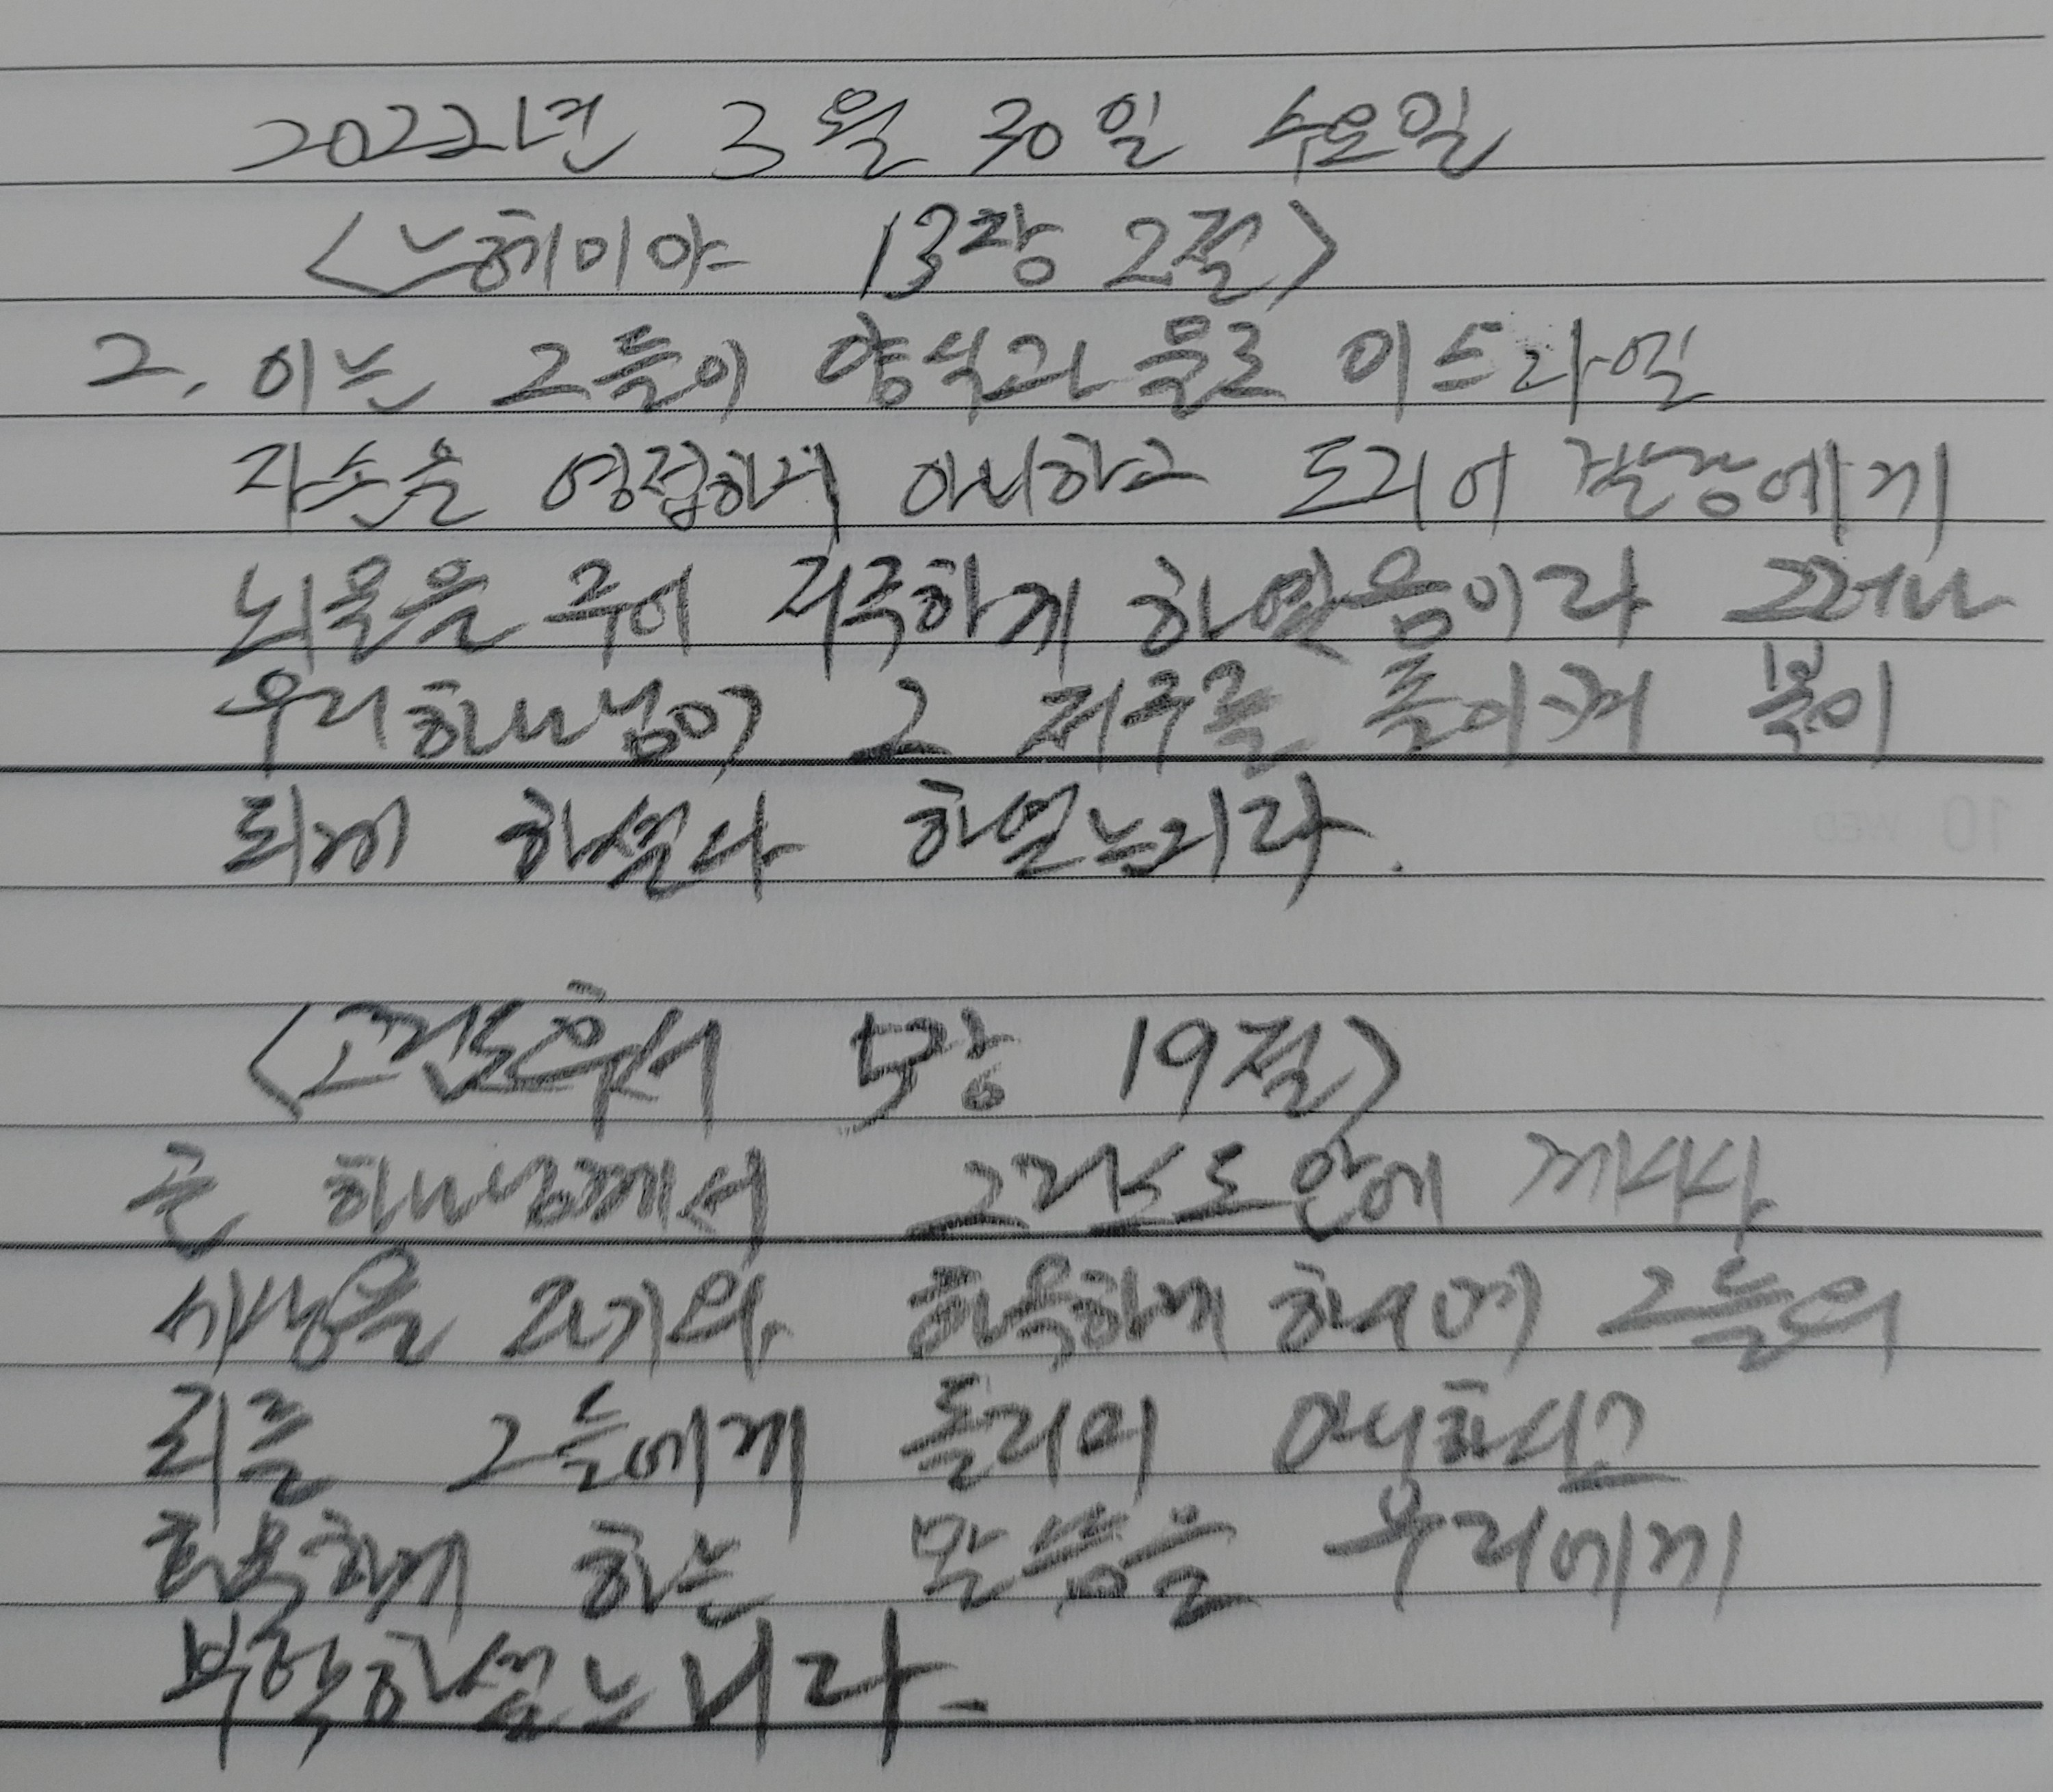 2022년 3월 30일 수요일
<느헤미야 13장 2절>
2. 이는 그들이 양식과 물로 이스라엘
자손을 영접하지 아니하고 도리어 발람에게
뇌물을 주어 저주하게 하였음이라 그러나
우리 하나님이 그 저주를 돌이켜 복이
되게 하셨다 하였느니라.
<고린도후서 5장 19절>
곧 하나님께서 그리스도 안에 계시사
세상을 자기와 화목하게 하시며 그들의
죄를 그들에게 돌리지 아니하시고
화목하게 하는 말씀을 우리에게
부탁하셨느니라.
10 WED